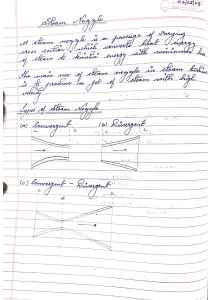 Steam Nozzle
A steam nozzle is a passage of varying
cross section, which converts heat energy
of steam to kinetic energy with minimum
The main use of steam nozzle in steam turbine
is to produce a jet of steam with high
velocity
Types of Steam Nozzle:
(a) Convergent (b) Divergent
(c) Convergent - Divergent